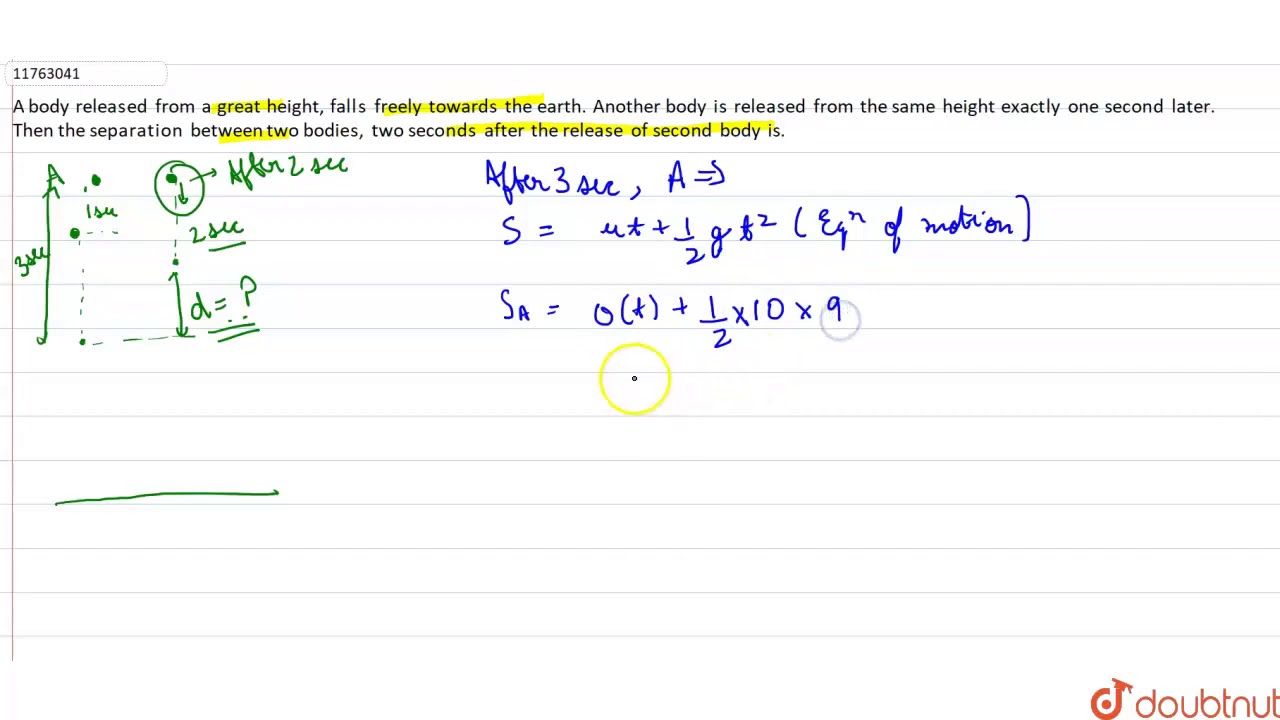 11763041
A body released from a great height, falls freely towards the earth. Another body is released from the same height exactly one second later.
Then the separation between two bodies, two seconds after the release of second body is.
A
1 sec
3 sec
After 2 sec
2 sec
d = ?
After 3 sec, A ⇒
S = ut + 1/2 g t² ( Eqⁿ of motion ]
S_A = 0(t) + 1/2 × 10 × 9
doubtnut